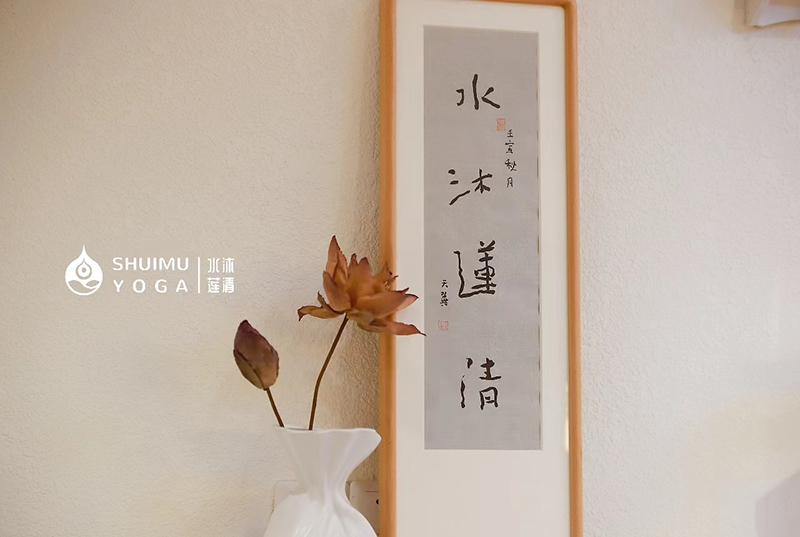 SHUIMU
YOGA
水沐
莲清
水
沐
蓮
清
壬寅秋月